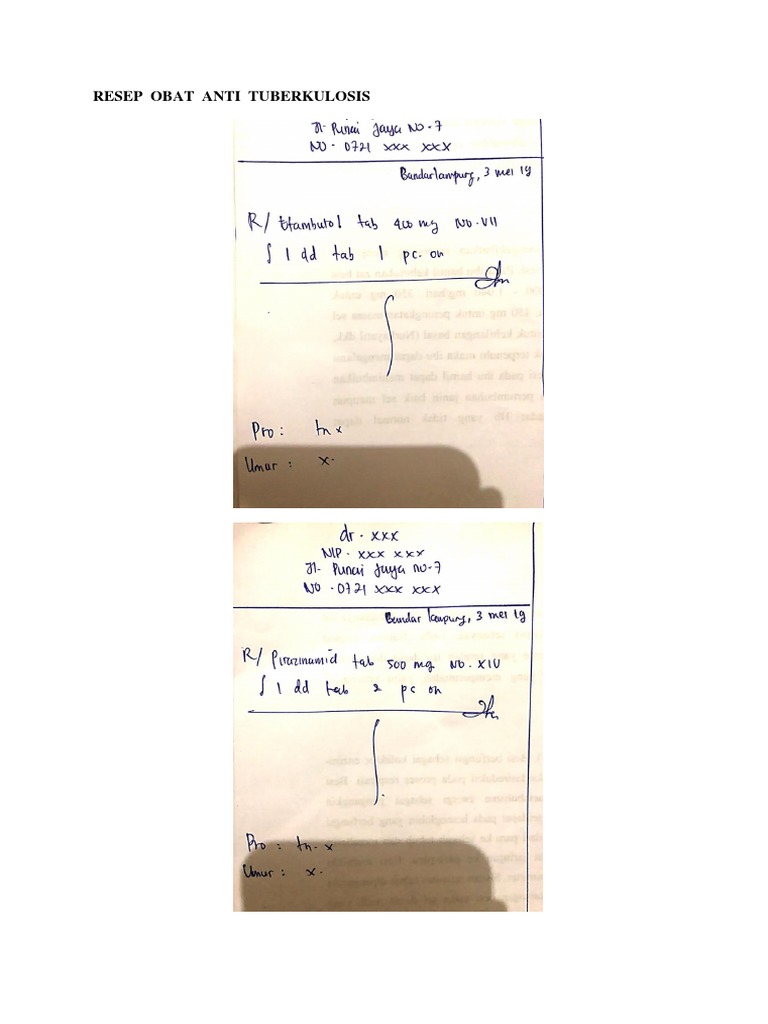 RESEP OBAT ANTI TUBERKULOSIS
Jl. Punai Jaya No. 7
NO. 0721 xxx xxx
Bandarlampung, 3 mei 19
R/ Etambutol tab 400 mg No. VII
∫ 1 dd tab 1 pc. on
Pro : tn x
Umur : x.
dr. xxx
NIP. xxx xxx
Jl. Punai Jaya no. 7
NO. 0721 xxx xxx
Bandar lampung, 3 mei 19
R/ Pirazinamid tab 500 mg No. XIV
∫ 1 dd tab 2 pc on
Pro : tn. x
Umur : x.